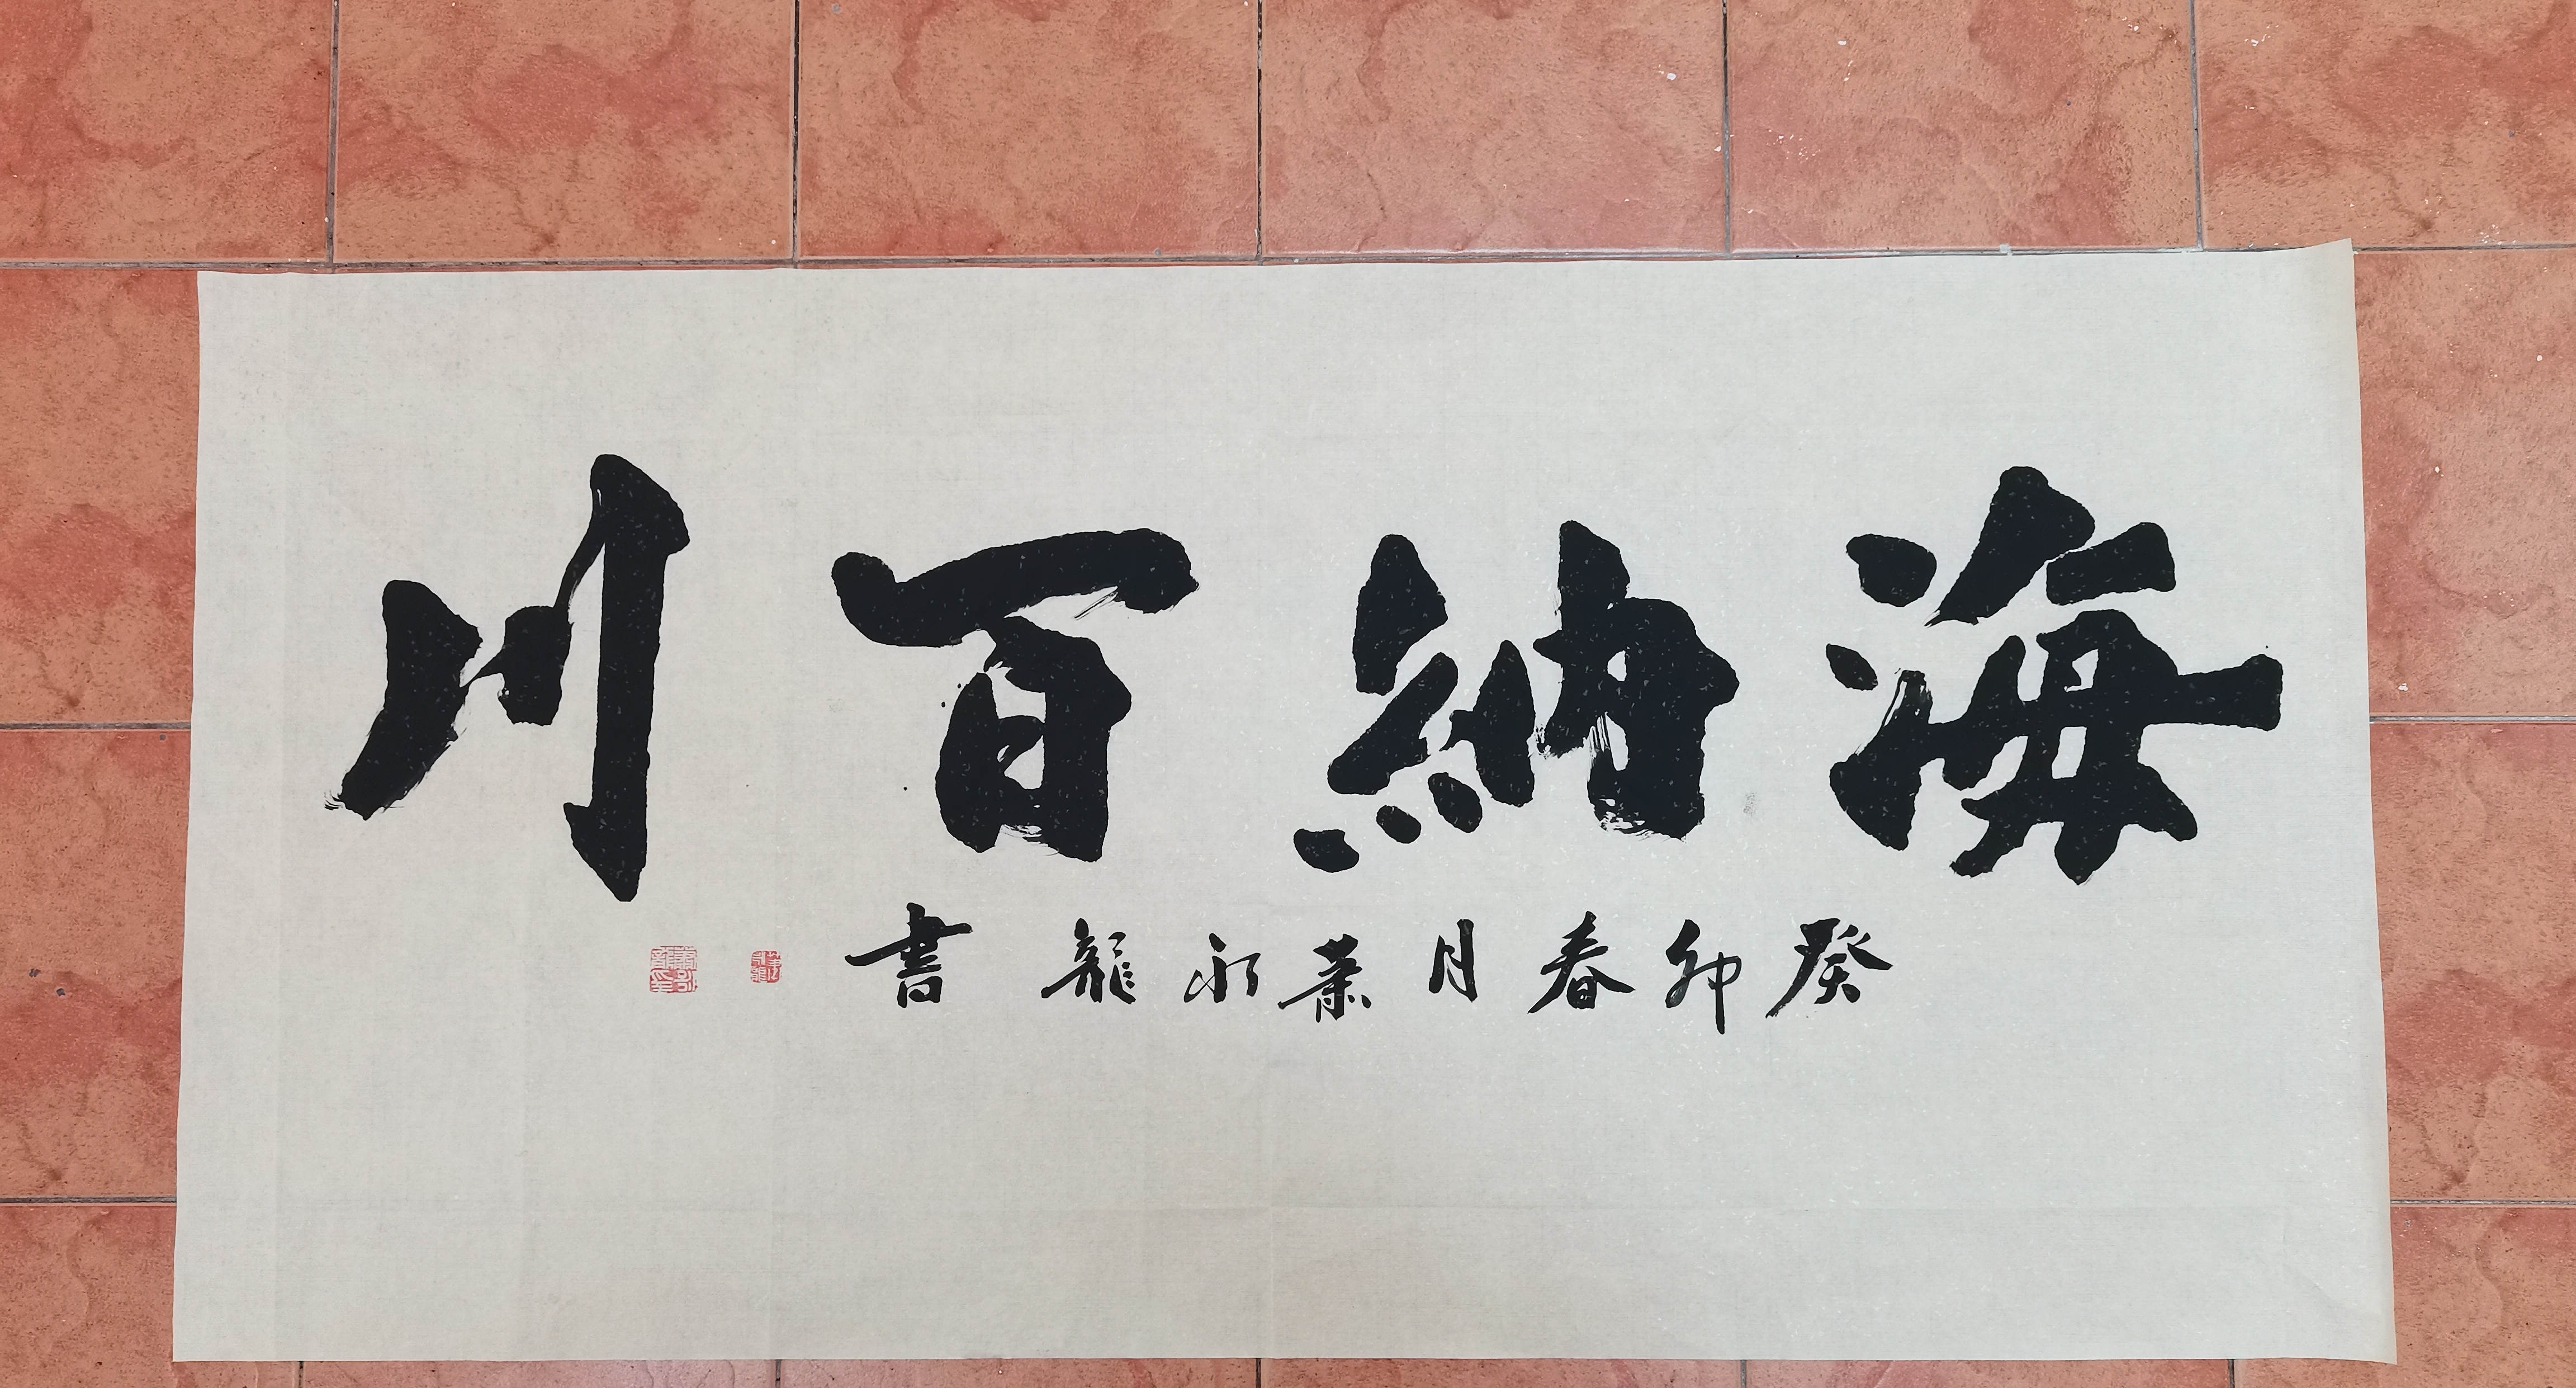 海納百川
癸卯春月葉永龍書